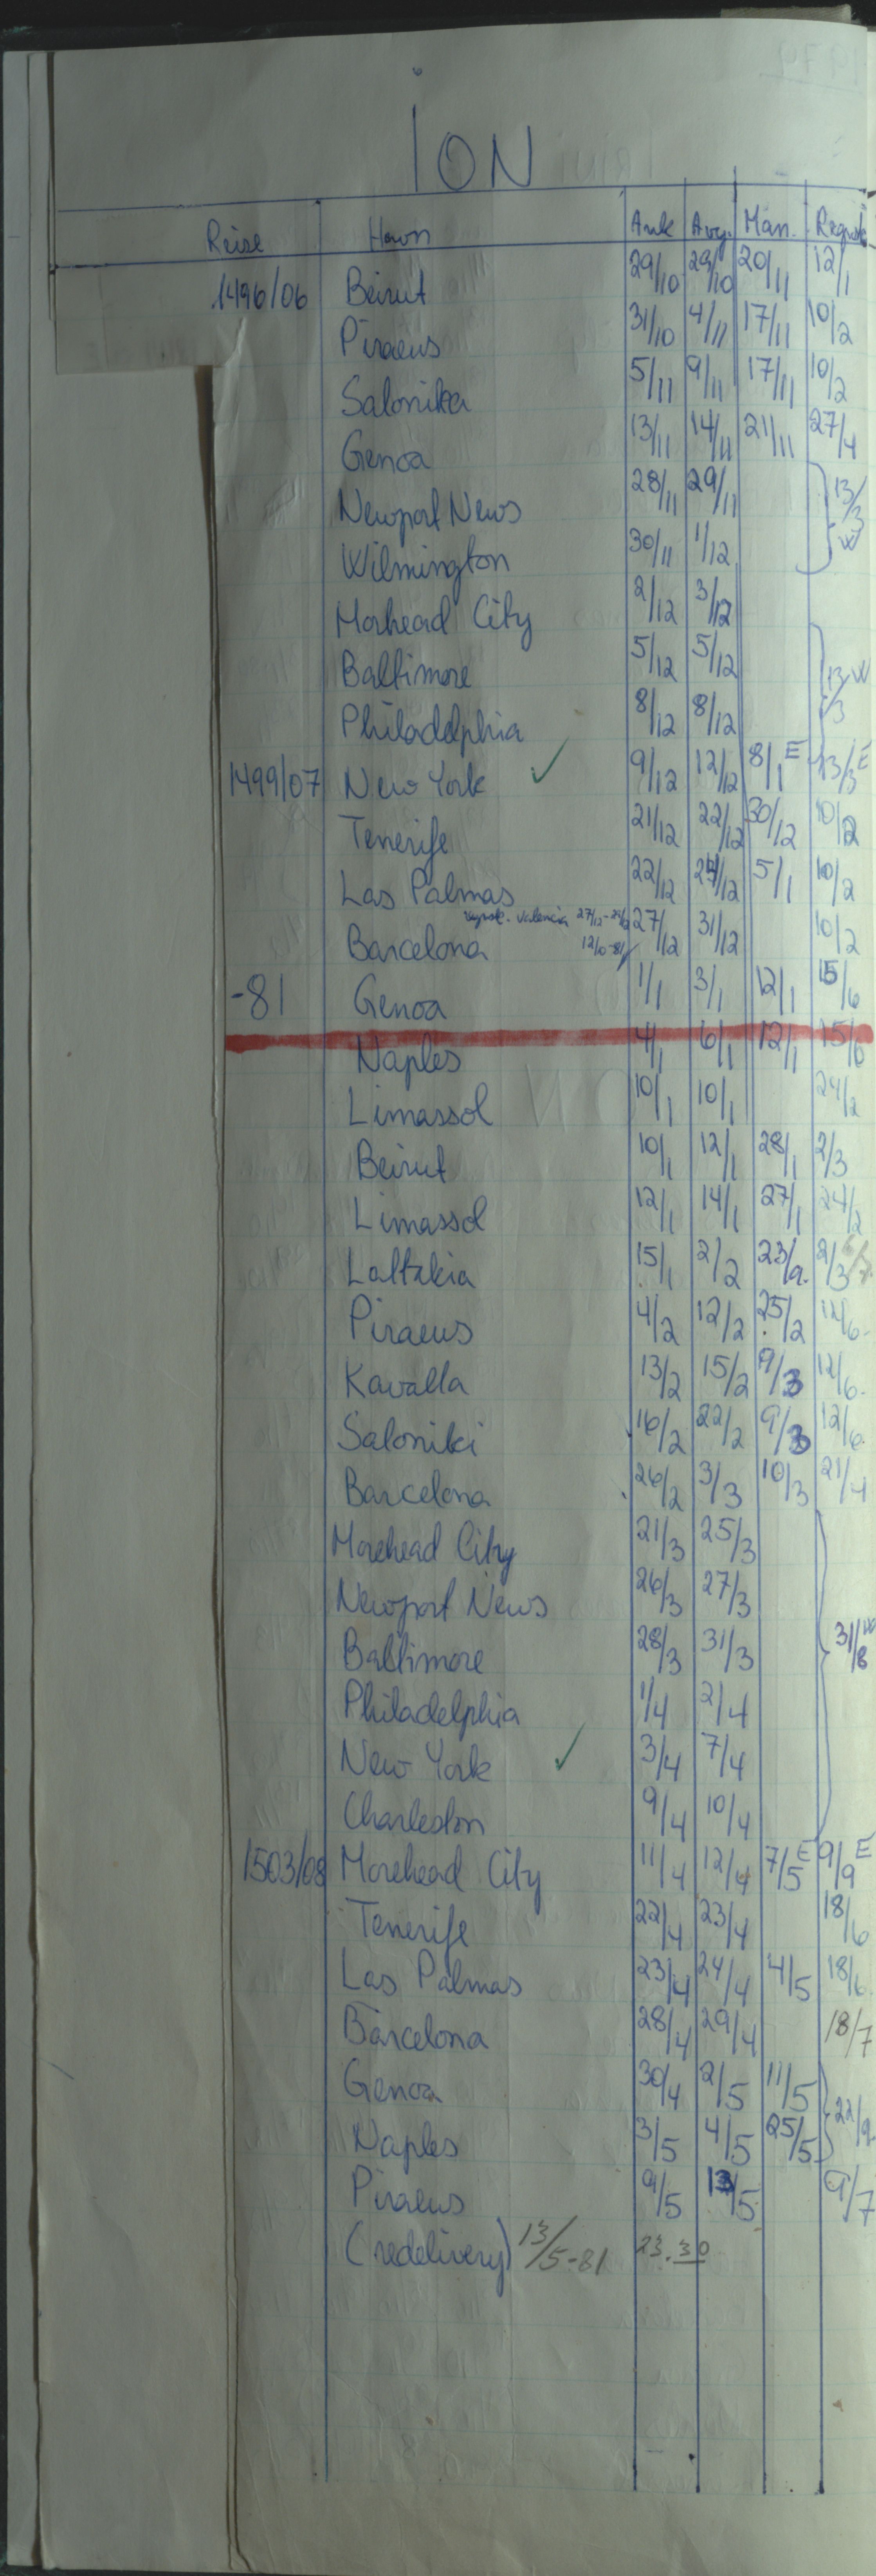 ION
Reise Havn Ank Avg. Man. Regnsk
1496/06 Beirut 29/10 29/10 20/11 12/1
Piraeus 31/10 4/11 17/11 10/2
Salonika 5/11 9/11 17/11 10/2
Genoa 13/11 14/11 21/11 27/4
Newport News 28/11 29/11 13/3
Wilmington 30/11 1/12 W
Morhead City 2/12 3/12
Baltimore 5/12 5/12 13/3 W
Philadelphia 8/12 8/12
1499/07 New York ✓ 9/12 12/12 8/1 E 13/3 E
Tenerife 21/12 22/12 30/12 10/2
Las Palmas 22/12 24/12 5/1 10/2
regnsk. Valencia 27/12
Barcelona 27/12 31/12 10/2
-81 Genoa 1/1 3/1 12/1 15/6
Naples 4/1 6/1 12/1 15/6
Limassol 10/1 10/1 24/2
Beirut 10/1 12/1 28/1 2/3
Limassol 12/1 14/1 27/1 24/2
Lattakia 15/1 2/2 23/2 2/3
Piraeus 4/2 12/2 25/2 12/6
Kavalla 13/2 15/2 9/3 12/6
Saloniki 16/2 22/2 9/3 12/6
Barcelona 26/2 3/3 10/3 21/4
Morehead City 21/3 25/3
Newport News 26/3 27/3
Baltimore 28/3 31/3 31/8 W
Philadelphia 1/4 2/4
New York ✓ 3/4 7/4
Charleston 9/4 10/4
1503/08 Morehead City 11/4 12/4 7/5 E 9/9 E
Tenerife 22/4 23/4 18/6
Las Palmas 23/4 24/4 4/5 18/6
Barcelona 28/4 29/4 18/7
Genoa 30/4 2/5 11/5 22/9
Naples 3/5 4/5 25/5
Piraeus 9/5 13/5 9/7
(redelivery) 13/5-81 23.30